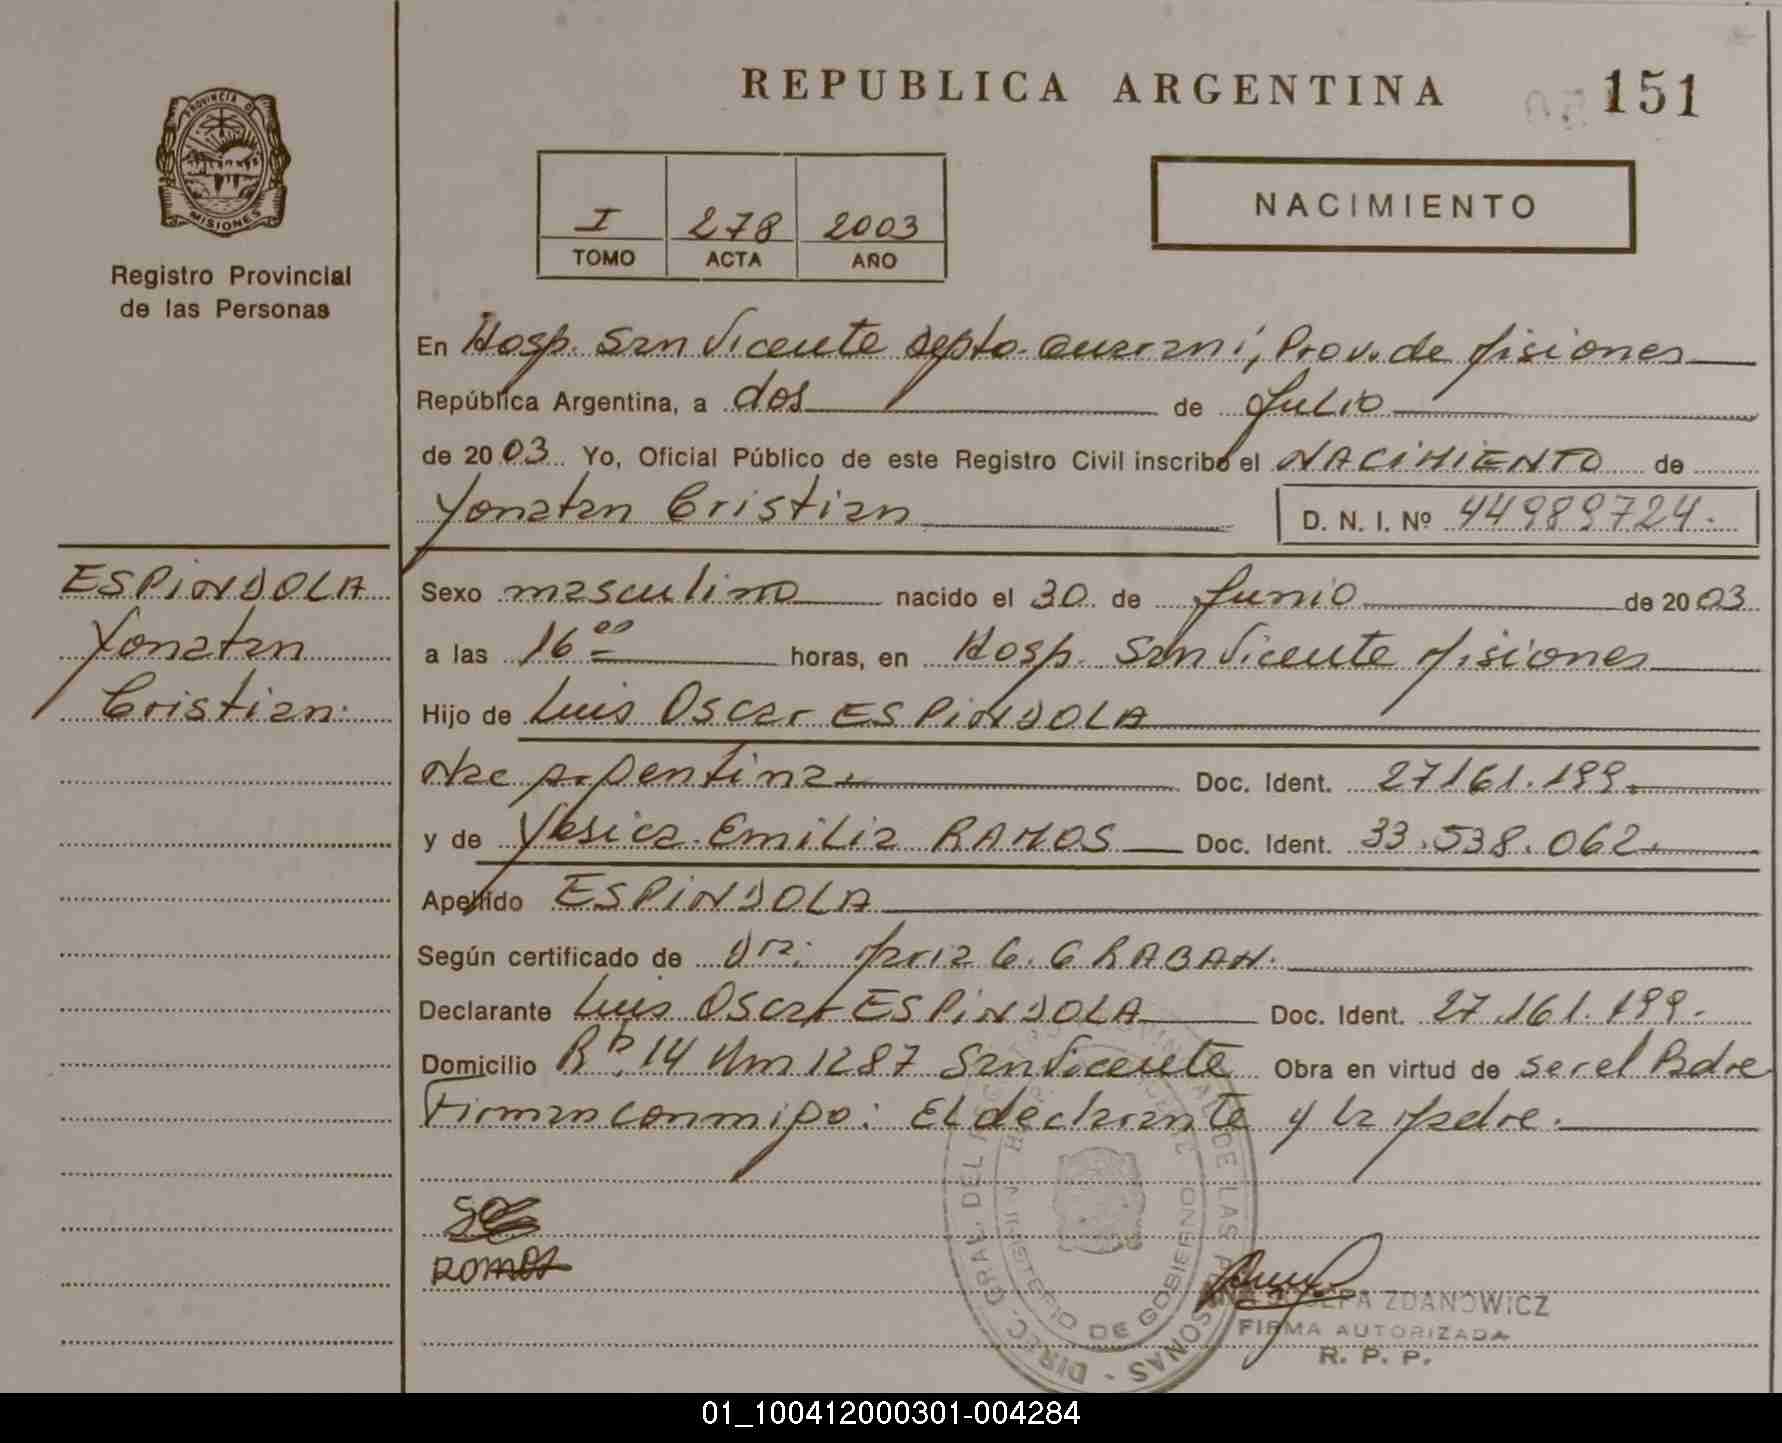 PROVINCIA DE
MISIONES
Registro Provincial
de las Personas
REPUBLICA ARGENTINA 151
I 278 2003
TOMO ACTA AÑO
NACIMIENTO
En Hosp. San Vicente Depto. Guarani, Prov. de Misiones
República Argentina, a dos de Julio
de 2003 Yo, Oficial Público de este Registro Civil inscribo el NACIMIENTO de
Yonatan Cristian D. N. I. Nº 44989724.
ESPINDOLA
Yonatan
Cristian.
Sexo masculino nacido el 30 de Junio de 2003
a las 16 00 horas, en Hosp. San Vicente Misiones
Hijo de Luis Oscar ESPINDOLA
Nac Argentina. Doc. Ident. 27161.199.
y de Yesica Emilia RAMOS Doc. Ident. 33.538.062.
Apellido ESPINDOLA
Según certificado de Dra: Maria G. GRABAN.
Declarante Luis Oscar ESPINDOLA Doc. Ident. 27.161.199.
Domicilio 14 Km 1287 San Vicente Obra en virtud de ser el Padre
Firman conmigo: El declarante y la Madre.
DIREC. GRAL. DEL DE LAS PERSONAS
MINISTERIO DE GOBIERNO
ZDANOWICZ
FIRMA AUTORIZADA
R. P. P.
01_100412000301-004284